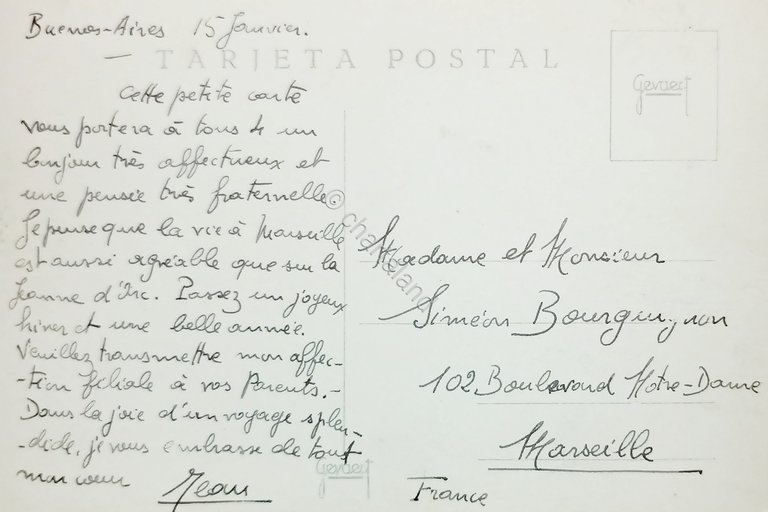 Buenos-Aires 15 Janvier.
TARJETA POSTAL
Gevaert
Cette petite carte
vous portera à tous 4 un
bonjour très affectueux et
une pensée très fraternelle.
Je pense que la vie à Marseille
est aussi agréable que sur la
Jeanne d'Arc. Passez un joyeux
hiver et une belle année.
Veuillez transmettre mon affec-
-tion filiale à vos Parents.-
Dans la joie d'un voyage splen-
-dide, je vous embrasse de tout
mon coeur Jean
Madame et Monsieur
Siméon Bourguignon
102 Boulevard Notre-Dame
Marseille
France
Gevaert